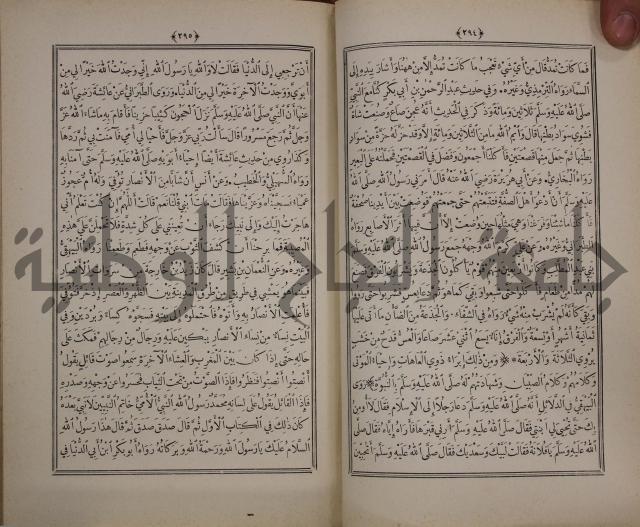 ﴿٢٩٤﴾
فما كانت تمد قال من أي شيء تعجب ما كانت تمد إلا من ههنا وأشار بيده إلى
السماء رواه الترمذي وغيره وفي حديث عبد الرحمن بن أبي بكر كنا مع النبي
صلى الله عليه وسلم ثلاثين ومائة وذكر في الحديث أنه عجن صاع وصنعت شاة
فشوي سواد بطنها قال وأيم الله ما من الثلاثين ومائة إلا وقد حز له حزة من سواد
بطنها ثم جعل منها قصعتين فأكلنا أجمعون وفضل في القصعتين فحملته على البعير
رواه البخاري وعن أبي هريرة رضي الله عنه قال أمرني رسول الله صلى الله
عليه وسلم أن أدعو أهل الصفة فتتبعتهم حتى جمعتهم فوضعت بين أيدينا صحفة
فأكلنا ما شئنا وفرغنا وهي مثلها حين وضعت إلا أن فيها أثر الأصابع رواه
وعن علي كرم الله وجهه جمع رسول الله صلى الله عليه وسلم
بني عبد المطلب وكانوا أربعين منهم قوم يأكلون الجذعة ويشربون الفرق فصنع
حتى شبعوا وبقي كما هو ثم دعا بعس فشربوا حتى رووا
وبقي كأنه لم يشرب منه شيء رواه في الشفاء والجذعة من الضأن ما أتى عليها
ثمانية أشهر أو تسعة والفرق إناء يسع اثني عشر صاعا والعس قدح من خشب
يروي الثلاثة والأربعة ومن ذلك إبراء ذوي العاهات وإحياء الموتى
وكلامهم وكلام الصبيان وشهادتهم له صلى الله عليه وسلم بالنبوة روى
البيهقي في الدلائل أنه صلى الله عليه وسلم دعا رجلا إلى الإسلام فقال لا أومن
بك حتى تحيي لي ابنتي فقال صلى الله عليه وسلم أرني قبرها فأراه إياه فقال صلى
الله عليه وسلم يا فلانة فقالت لبيك وسعديك فقال صلى الله عليه وسلم أتحبين
﴿٢٩٥﴾
أن ترجعي إلى الدنيا فقالت لا والله يا رسول الله إني وجدت الله خيرا لي من
أبوي ووجدت الآخرة خيرا لي من الدنيا وروى الطبراني عن عائشة رضي الله
عنها أن النبي صلى الله عليه وسلم نزل الحجون كئيبا حزينا فأقام به ما شاء الله عز
وجل ثم رجع مسرورا قال سألت ربي عز وجل فأحيا لي أمي فآمنت بي ثم ردها
وكذا روي من حديث عائشة أيضا إحياء أبويه صلى الله عليه وسلم حتى آمنا به
رواه السهيلي والخطيب وعن أنس أن شابا من الأنصار توفي وله أم عجوز
عمياء فسجيناه وعزيناها فقالت مات ابني قلنا نعم قالت اللهم إن كنت تعلم أني
هاجرت إليك وإلى نبيك رجاء أن تعينني على كل شدة فلا تحملن علي هذه
المصيبة فما برحنا أن كشف الثوب عن وجهه فطعم وطعمنا رواه البيهقي
وغيره وعن النعمان بن بشير قال كان زيد بن خارجة من سروات الأنصار
فبينما هو يمشي في طريق من طرق المدينة بين الظهر والعصر إذ خر فتوفي
فأعلمت به الأنصار فأتوه فاحتملوه إلى بيته فسجوه كساء وبردين وفي
البيت نساء من نساء الأنصار يبكين عليه ورجال من رجالهم فمكث على
حاله حتى إذا كان بين المغرب والعشاء الآخرة سمعوا صوت قائل يقول
أنصتوا أنصتوا فنظروا فإذا الصوت من تحت الثياب فحسروا عن وجهه وصدره
فإذا القائل يقول على لسانه محمد رسول الله النبي الأمي خاتم النبيين لا نبي بعده
كان ذلك في الكتاب الأول ثم قال صدق صدق ثم قال هذا رسول الله
السلام عليك يا رسول الله ورحمة الله وبركاته رواه أبو بكر ابن أبي الدنيا في
جامعة النجاح الوطنية